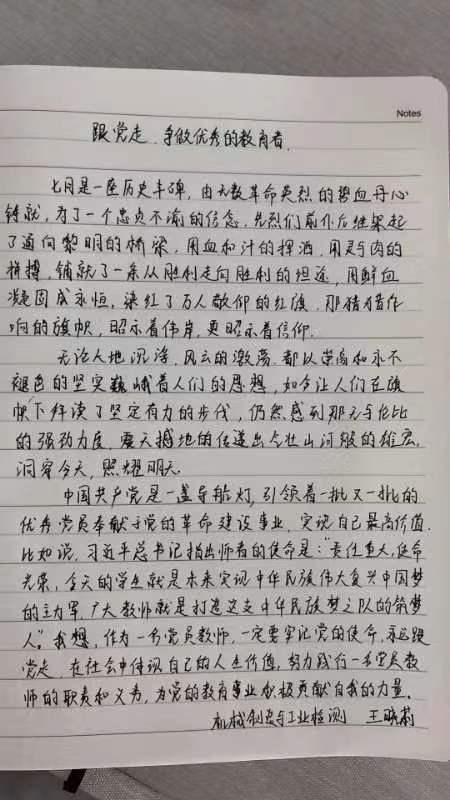 Notes
跟党走、争做优秀的教育者
七月是一座历史丰碑，由无数革命英烈的碧血丹心
铸就，为了一个忠贞不渝的信念，先烈们前仆后继架起
了通向黎明的桥梁，用血和汗的挥洒，用灵与肉的
拼搏，铺就了一条从胜利走向胜利的坦途，用鲜血
凝固成永恒，染红了万人敬仰的红旗，那猎猎作
响的旗帜，昭示着伟岸，更昭示着信仰。
无论人地沉浮、风云的激荡，都以崇高和永不
褪色的坚实巍峨着人们的思想，如今让人们在旗
帜下拜读了坚定有力的步伐，仍然感到那无与伦比
的强劲力度，震天撼地的传递出气壮山河般的雄宏，
洞穿今天，照耀明天。
中国共产党是一盏导航灯，引领着一批又一批的
优秀党员奉献于党的革命建设事业，实现自己最高价值。
比如说，习近平总书记指出师者的使命是：“责任重大，使命
光荣，今天的学生就是未来实现中华民族伟大复兴中国梦
的主力军，广大教师就是打造这支中华民族梦之队的筑梦
人。”我想，作为一名党员教师，一定要牢记党的使命，永远跟
党走，在社会中体现自己的人生价值，努力践行一名党员教
师的职责和义务，为党的教育事业积极贡献自我的力量。
机械制造与工业检测 王晓莉